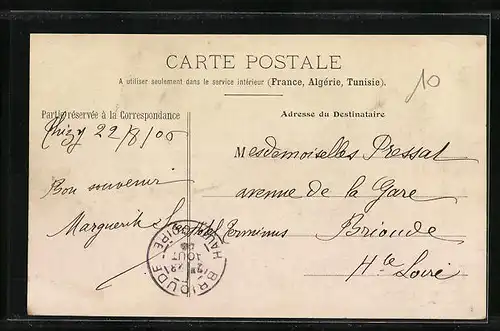 CARTE POSTALE
A utiliser seulement dans le service intérieur (France, Algérie, Tunisie).
10
Partie réservée à la Correspondance
Adresse du Destinataire
22/8/00
Bon souvenir
Marguerite
Mesdemoiselles Pressat
avenue de la Gare
Hôtel Terminus Brioude
Hte Loire
BRIOUDE
HAUTE LOIRE
AOUT